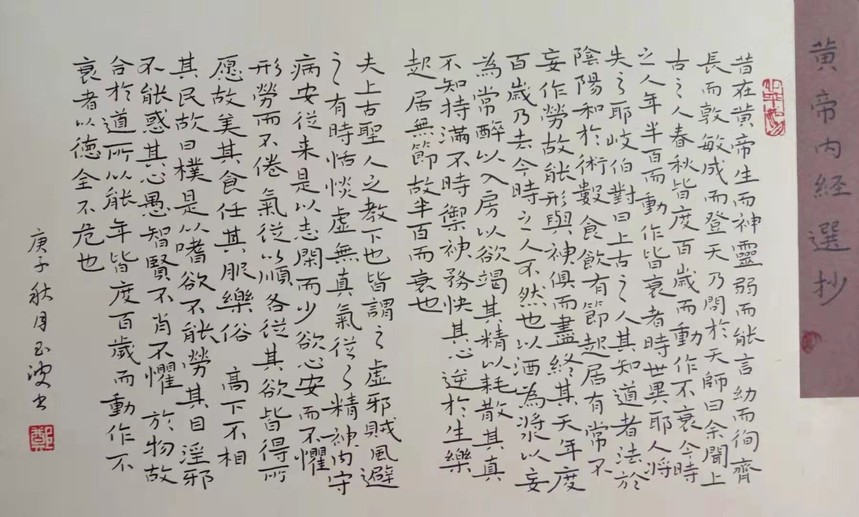 黄帝内经選抄
昔在黄帝生而神靈弱而能言幼而徇齊
長而敦敏成而登天乃問於天師曰余聞上
古之人春秋皆度百歲而動作不衰今時
之人年半百而動作皆衰者時世異耶人將
失之耶岐伯對曰上古之人其知道者法於
陰陽和於術數食飲有節起居有常不
妄作勞故能形與神俱而盡終其天年度
百歲乃去今時之人不然也以酒為漿以妄
為常醉以入房以欲竭其精以耗散其真
不知持滿不時禦神務快其心逆於生樂
起居無節故半百而衰也
夫上古聖人之教下也皆謂之虛邪賊風避
之有時恬惔虛無真氣從之精神内守
病安從来是以志閑而少欲心安而不懼
形勞而不倦氣從以順各從其欲皆得所
愿故美其食任其服樂俗高下不相
其民故曰樸是以嗜欲不能勞其目淫邪
不能惑其心愚智賢不肖不懼於物故
合於道所以能年皆度百歲而動作不
衰者以德全不危也
庚子秋月玉波书
鄭